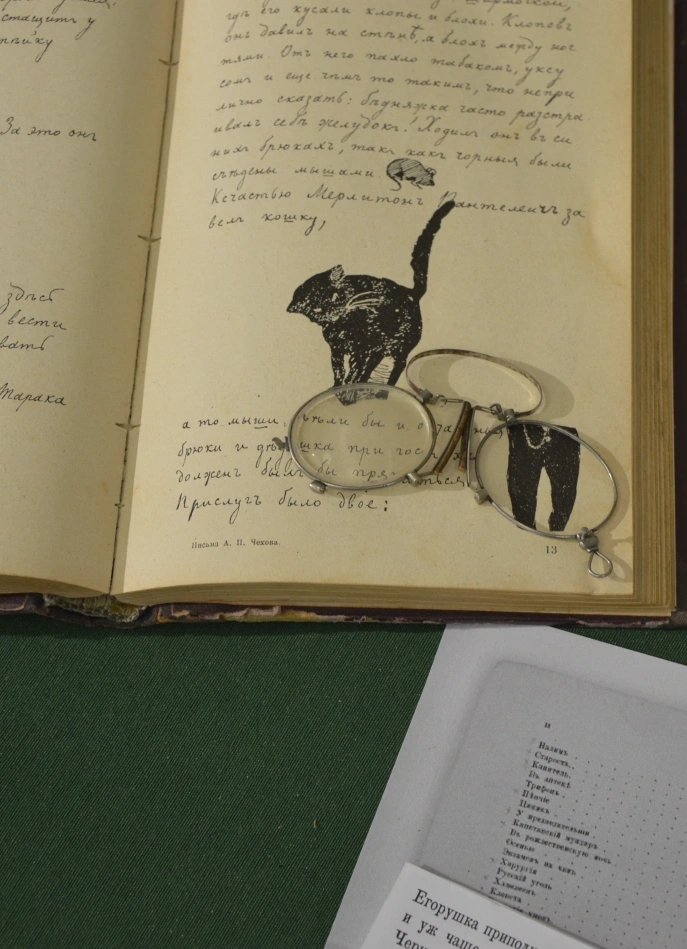 стащить у
За это онъ
здѣсь
вести
Тарака
гдѣ его кусали клопы и блохи. Клоповъ
онъ давилъ на стѣнѣ, а блохъ между ног
тями. Отъ него пахло табакомъ, уксу
сомъ и еще чѣмъ то такимъ, что непри
лично сказать: бѣдняжка часто разстра
ивалъ себѣ желудокъ! Ходилъ онъ въ си
нихъ брюкахъ, такъ какъ чорныя были
съѣдены мышами.
Ксчастью Мерлитонъ Пантелеичъ за
велъ кошку,
а то мыши съѣли бы и
брюки и при
долженъ былъ бы
Прислугъ было двое:
Письма А. П. Чехова.
13
II
Налимъ
Староста
Канитель
Въ аптекѣ
Трифонъ
Пѣвчіе
Циникъ
У предводительши
Капитанскій мундиръ
Въ рождественскую ночь
Осенью
Экзаменъ на чинъ
Хирургія
Русскій уголь
Хамелеонъ
Клевета
Егорушка
и уж